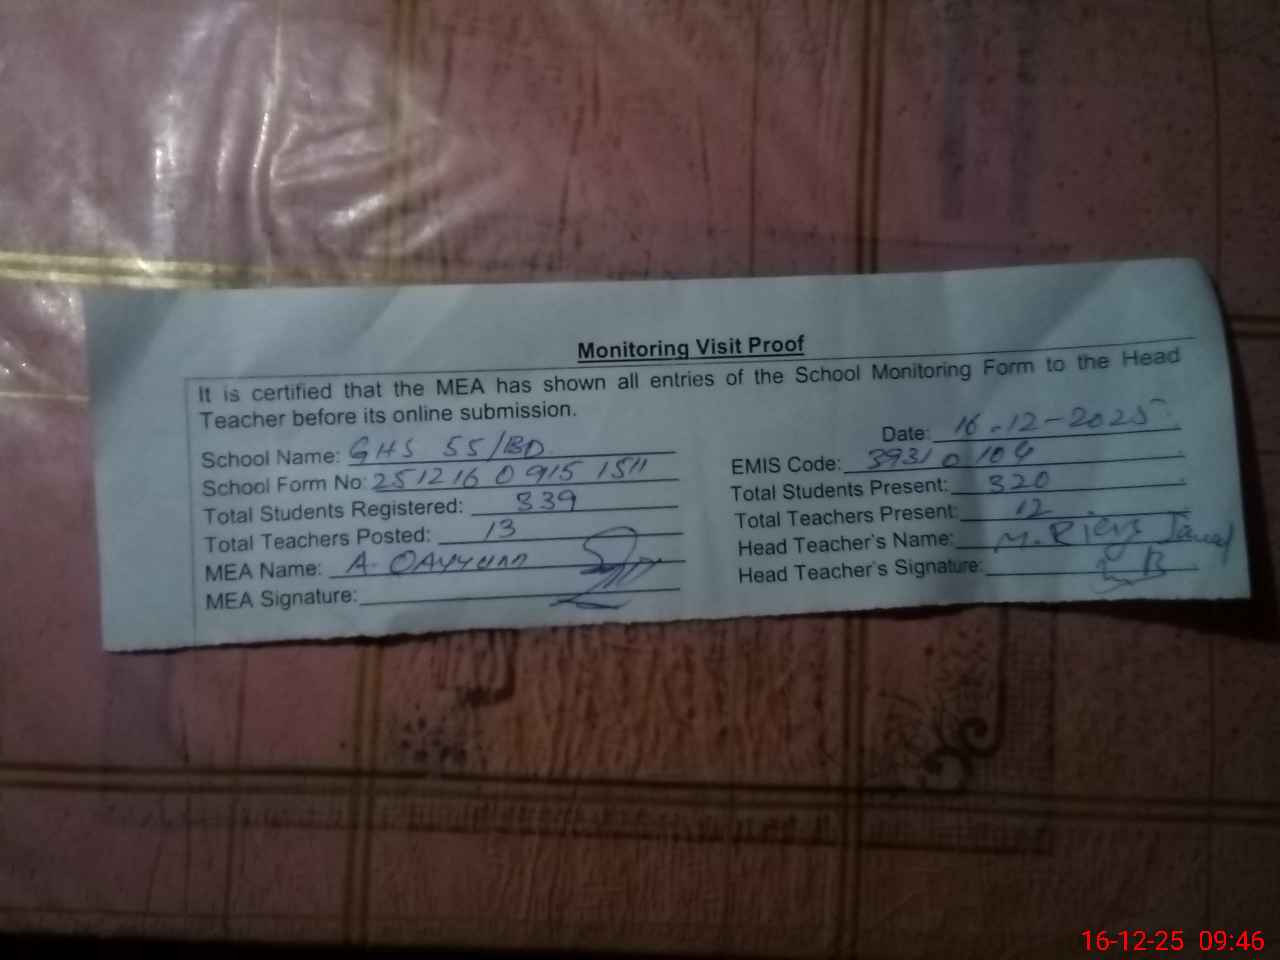 Monitoring Visit Proof
It is certified that the MEA has shown all entries of the School Monitoring Form to the Head
Teacher before its online submission.
Date: 16-12-2025
School Name: GHS 55/BD
EMIS Code: 39310104
School Form No: 251216 0915 1511
Total Students Present: 320
Total Students Registered: 339
Total Teachers Present: 12
Total Teachers Posted: 13
Head Teacher's Name: M.
MEA Name: A. QAYYUM
Head Teacher's Signature:
MEA Signature:
16-12-25 09:46